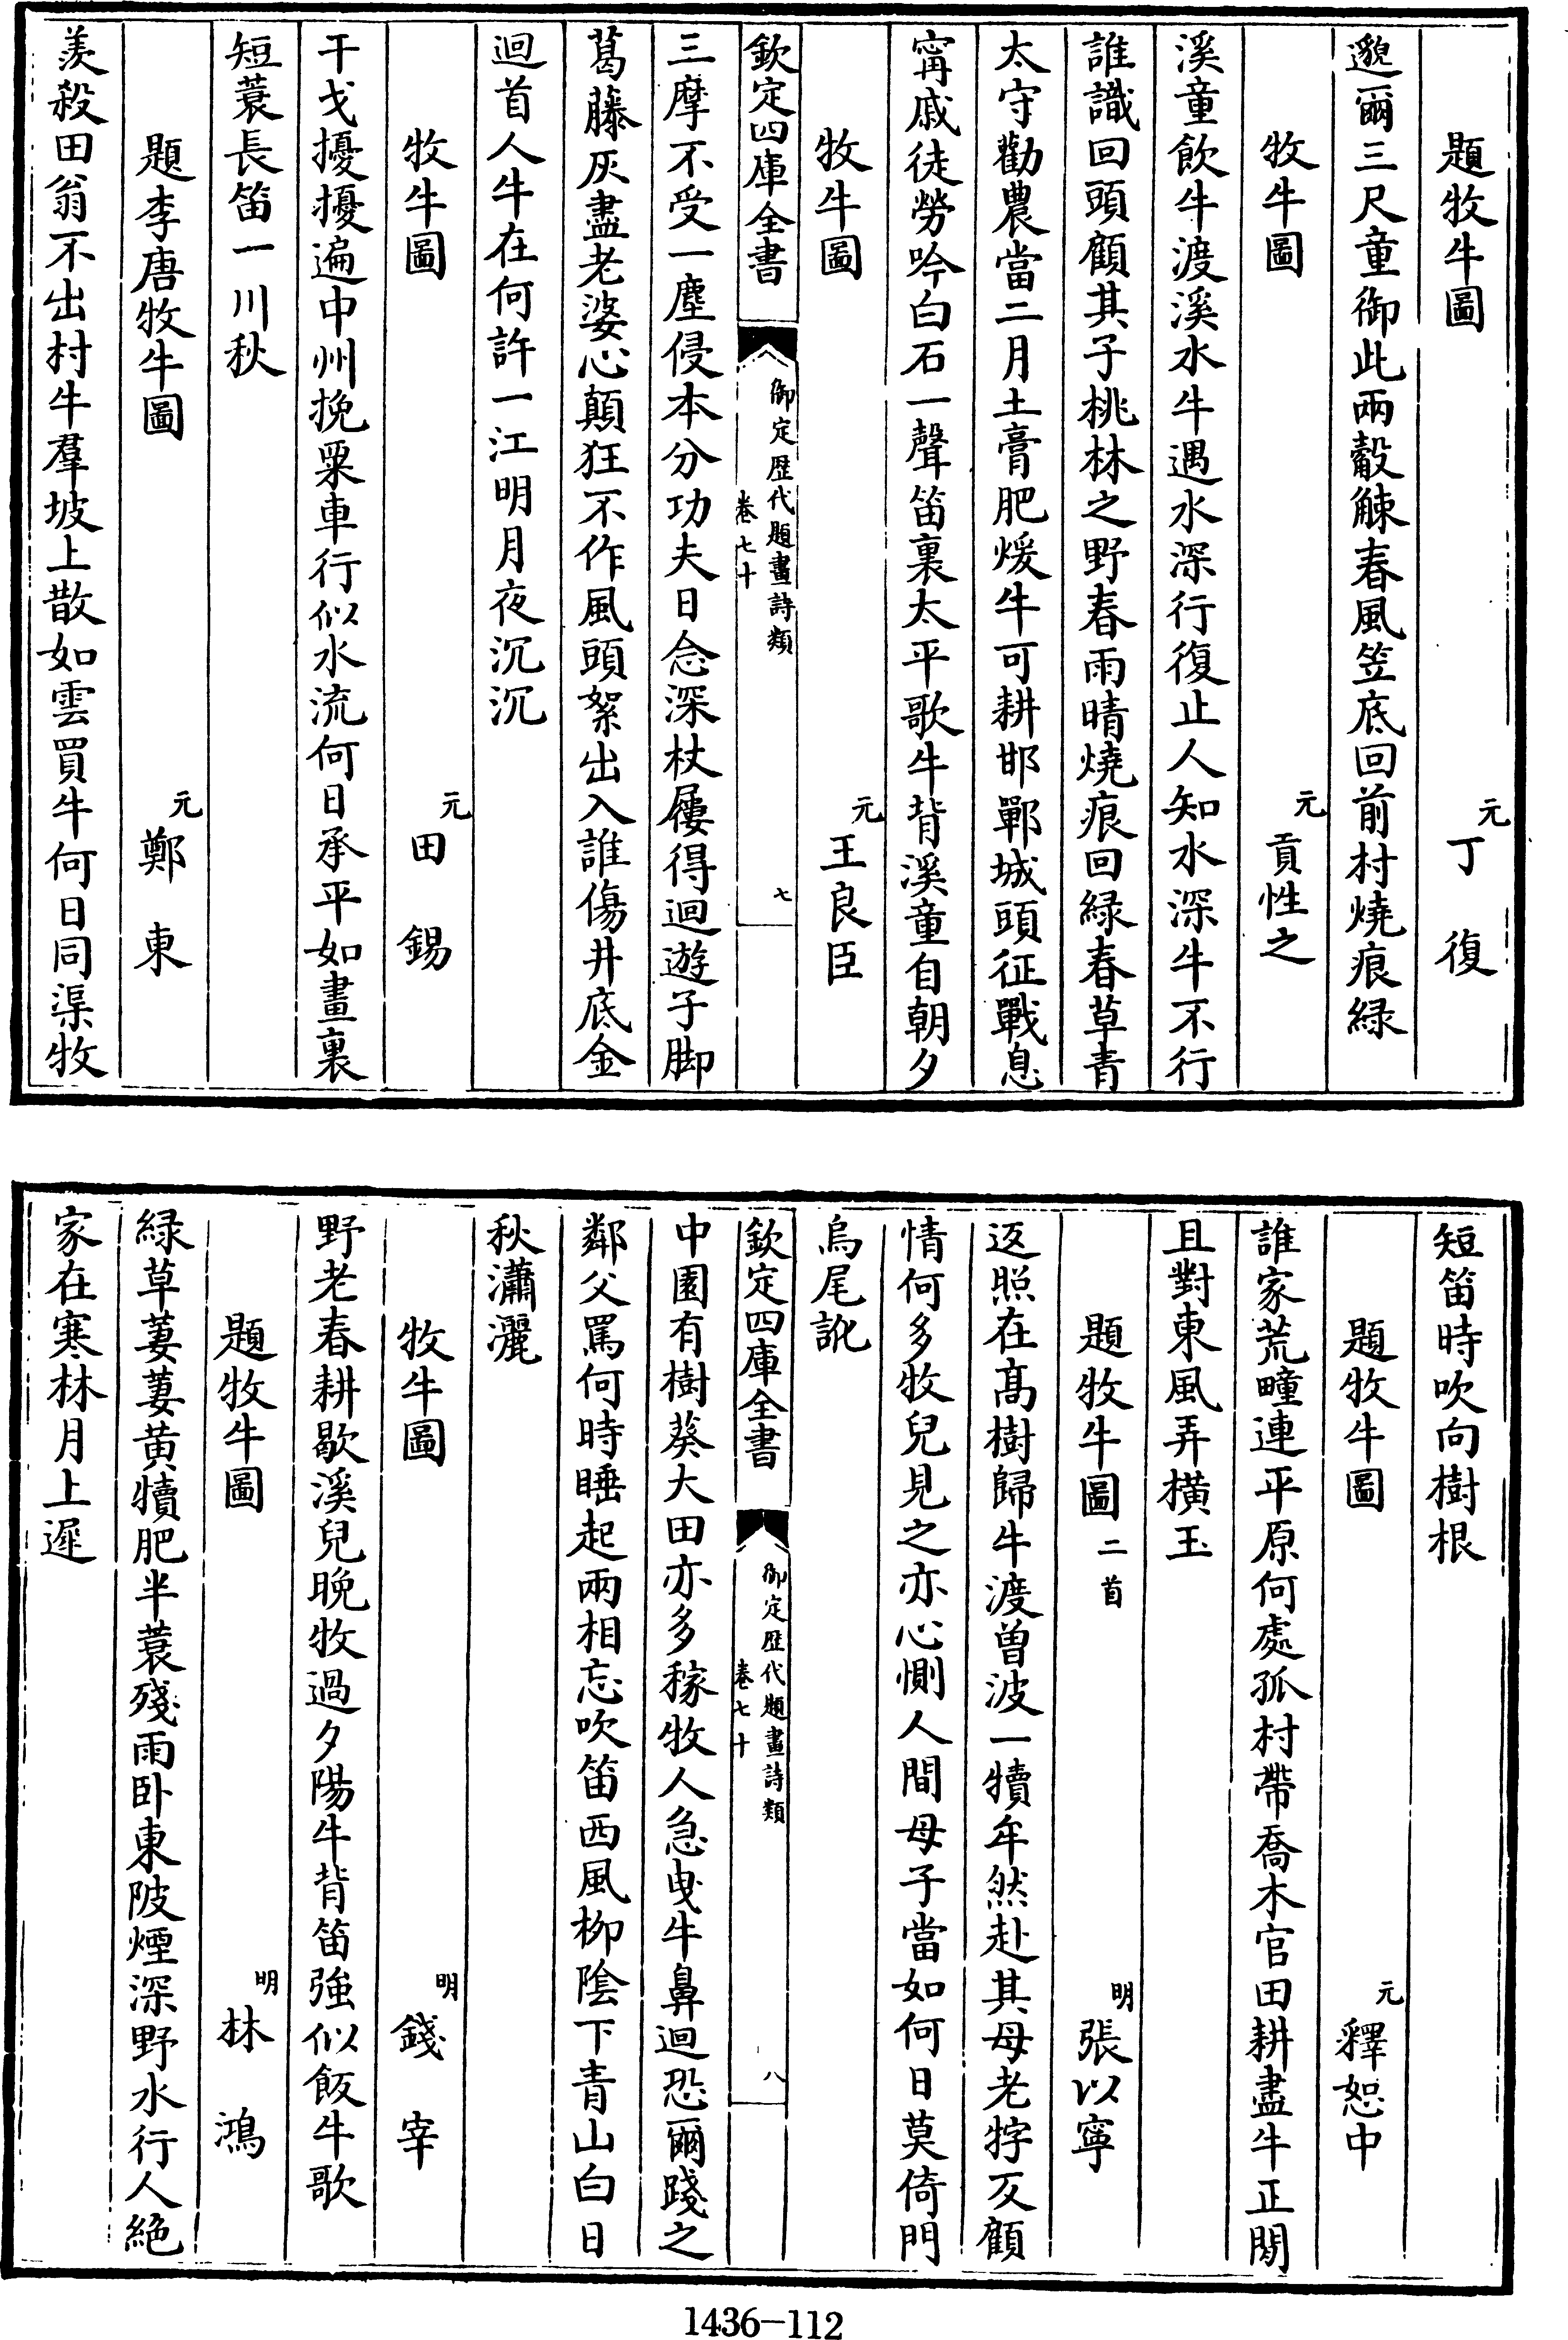 題牧牛圖　元丁復
邈爾三尺童御此兩觳觫春風笠底回前村燒痕綠
牧牛圖　元貢性之
溪童飲牛渡溪水牛遇水深行復止人知水深牛不行
誰識回頭顧其子桃林之野春雨晴燒痕回緑春草青
太守勸農當二月土膏肥煖牛可耕邯鄲城頭征戰息
甯戚徒勞吟白石一聲笛裏太平歌牛背溪童自朝夕
牧牛圖　元王良臣
欽定四庫全書　御定歴代題畫詩類卷七十　七
三摩不受一塵侵本分功夫日念深杖屨得迴遊子脚
葛藤灰盡老婆心顛狂不作風頭絮出入誰傷井底金
迴首人牛在何許一江明月夜沉沉
牧牛圖　元田錫
干戈擾擾遍中州挽粟車行似水流何日承平如畫裏
短蓑長笛一川秋
題李唐牧牛圖　元鄭東
羨殺田翁不出村牛羣坡上散如雲買牛何日同渠牧
短笛時吹向樹根
題牧牛圖　元釋恕中
誰家荒疃連平原何處孤村帶喬木官田耕盡牛正閒
且對東風弄橫玉
題牧牛圖二首　明張以寧
返照在髙樹歸牛渡曾波一犢牟然赴其母老牸反顧
情何多牧兒見之亦心惻人間母子當如何日莫倚門
烏尾訛
欽定四庫全書　御定歴代題畫詩類卷七十　八
中園有樹葵大田亦多稼牧人急曳牛鼻迴恐爾踐之
鄰父罵何時睡起兩相忘吹笛西風柳陰下青山白日
秋瀟灑
牧牛圖　明錢宰
野老春耕歇溪兒晚牧過夕陽牛背笛強似飯牛歌
題牧牛圖　明林鴻
緑草萋萋黄犢肥半蓑殘雨卧東陂煙深野水行人絶
家在寒林月上遲
1436-112